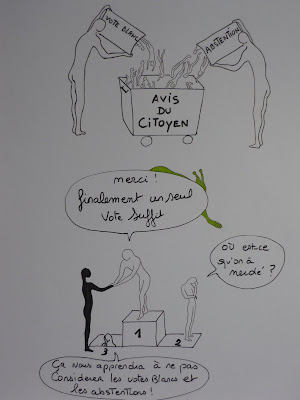 VOTE BLANC
ABSTENTIONS
AVIS
DU
CITOYEN
merci !
finalement un seul
vote suffit
OÙ est-ce
qu'on a
merdé ?
1
2
3
Ça nous apprendra à ne pas
Considerer les votes Blancs et
les abstentions !